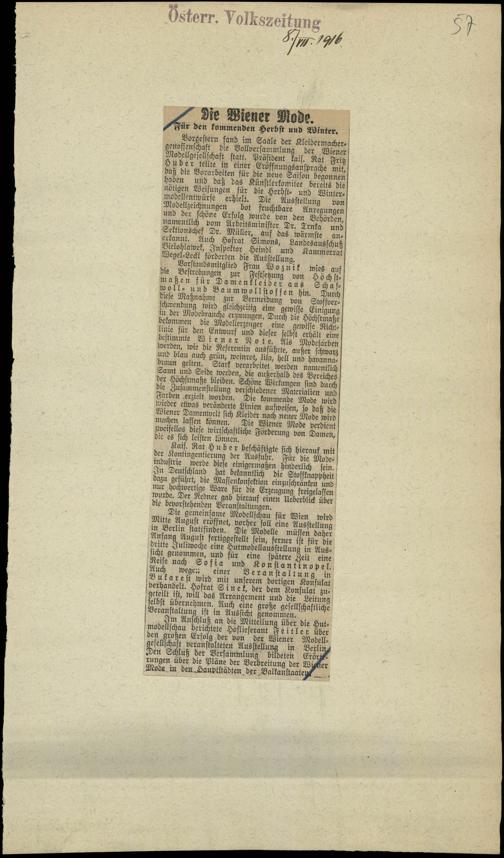 Österr. Volkszeitung
8/VIII. 1916
57
Die Wiener Mode.
Für den kommenden Herbst und Winter.
Vorgestern fand im Saale der Kleidermacher-
genossenschaft die Vollversammlung der Wiener
Modellgesellschaft statt. Präsident kais. Rat Fritz
Huber teilte in einer Eröffnungsansprache mit,
daß die Vorarbeiten für die neue Saison begonnen
haben und daß das Künstlerkomitee bereits die
nötigen Weisungen für die Herbst- und Winter-
modellentwürfe erhielt. Die Ausstellung von
Modellzeichnungen bot fruchtbare Anregungen
und der schöne Erfolg wurde von den Behörden,
namentlich vom Arbeitsminister Dr. Trnka und
Sektionschef Dr. Müller, auf das wärmste an-
erkannt. Auch Hofrat Simons, Landesausschuß
Bielohlawek, Inspektor Heindl und Kammerrat
Wegel-Ledl förderten die Ausstellung.
Vorstandsmitglied Frau Woznik wies auf
die Bestrebungen zur Festsetzung von Höchst-
maßen für Damenkleider aus Schaf-
woll- und Baumwollstoffen hin. Durch
diese Maßnahme zur Vermeidung von Stoffver-
schwendung wird gleichzeitig eine gewisse Einigung
in der Modebrauche erzwungen. Durch die Höchstmaße
bekommen die Modellerzeuger eine gewisse Richt-
linie für den Entwurf und dieser selbst erhält eine
bestimmte Wiener Note. Als Modefarben
werden, wie die Referentin ausführte, außer schwarz
und blau auch grün, weinrot, lila, hell und havanna-
braun gelten. Stark verarbeitet werden namentlich
Samt und Seide werden, die außerhalb des Bereiches
der Höchstmaße bleiben. Schöne Wirkungen sind durch
die Zusammenstellung verschiedener Materialien und
Farben erzielt worden. Die kommende Mode wird
wieder etwas veränderte Linien aufweisen, so daß die
Wiener Damenwelt sich Kleider nach neuer Mode wird
machen lassen können. Die Wiener Mode verdient
zweifellos diese wirtschaftliche Förderung von Damen,
die es sich leisten können.
Kais. Rat Huber beschäftigte sich hierauf mit
der Kontingentierung der Ausfuhr. Für die Mode-
industrie werde diese einigermaßen hinderlich sein.
In Deutschland hat bekanntlich die Stoffknappheit
dazu geführt, die Massenkonfektion einzuschränken und
nur hochwertige Ware für die Erzeugung freigelassen
wurde. Der Redner gab hierauf einen Ueberblick über
die bevorstehenden Veranstaltungen.
Die gemeinsame Modellschau für Wien wird
Mitte August eröffnet, vorher soll eine Ausstellung
in Berlin stattfinden. Die Modelle müssen daher
Anfang August fertiggestellt sein, ferner ist für die
dritte Juliwoche eine Hutmodellausstellung in Aus-
sicht genommen, und für eine spätere Zeit eine
Reise nach Sofia und Konstantinopel.
Auch wegen einer Veranstaltung in
Bukarest wird mit unserem dortigen Konsulat
verhandelt. Hofrat Sinek, der dem Konsulat zu-
geteilt ist, will das Arrangement und die Leitung
selbst übernehmen. Auch eine große gesellschaftliche
Veranstaltung ist in Aussicht genommen.
Im Anschluß an die Mitteilung über die Hut-
modellschau berichtete Hoflieferant Feitler über
den großen Erfolg der von der Wiener Modell-
gesellschaft veranstalteten Ausstellung in Berlin.
Den Schluß der Versammlung bildeten Erörte-
rungen über die Pläne der Verbreitung der Wiener
Mode in den Hauptstädten der Balkanstaaten.